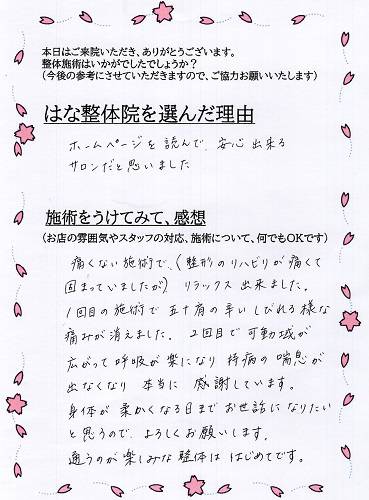 本日はご来院いただき、ありがとうございます。
整体施術はいかがでしたでしょうか？
（今後の参考にさせていただきますので、ご協力お願いいたします）
はな整体院を選んだ理由
ホームページを読んで、安心出来る
サロンだと思いました
施術をうけてみて、感想
（お店の雰囲気やスタッフの対応、施術について、何でもOKです）
痛くない施術で、（整形のリハビリが痛くて
困っていましたが）リラックス出来ました。
1回目の施術で五十肩の辛いしびれる様な
痛みが消えました。2回目で可動域が
広がって呼吸が楽になり持病の喘息が
出なくなり本当に感謝しています。
身体が柔かくなる日までお世話になりたい
と思うので、よろしくお願いします。
通うのが楽しみな整体ははじめてです。